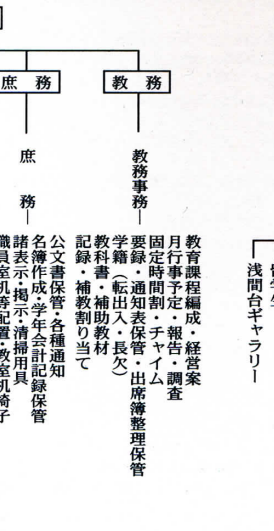 浅間台ギャラリー
教務
教務事務
教育課程編成・経営案
月行事予定・報告・調査
固定時間割・チャイム
要録・通知表保管・出席簿整理保管
学籍（転出入・長欠）
教科書・補助教材
記録・補教割り当て
庶務
庶務
公文書保管・各種通知
名簿作成・学年会計記録保管
諸表示・掲示・清掃用具
職員室机等配置・教室机椅子